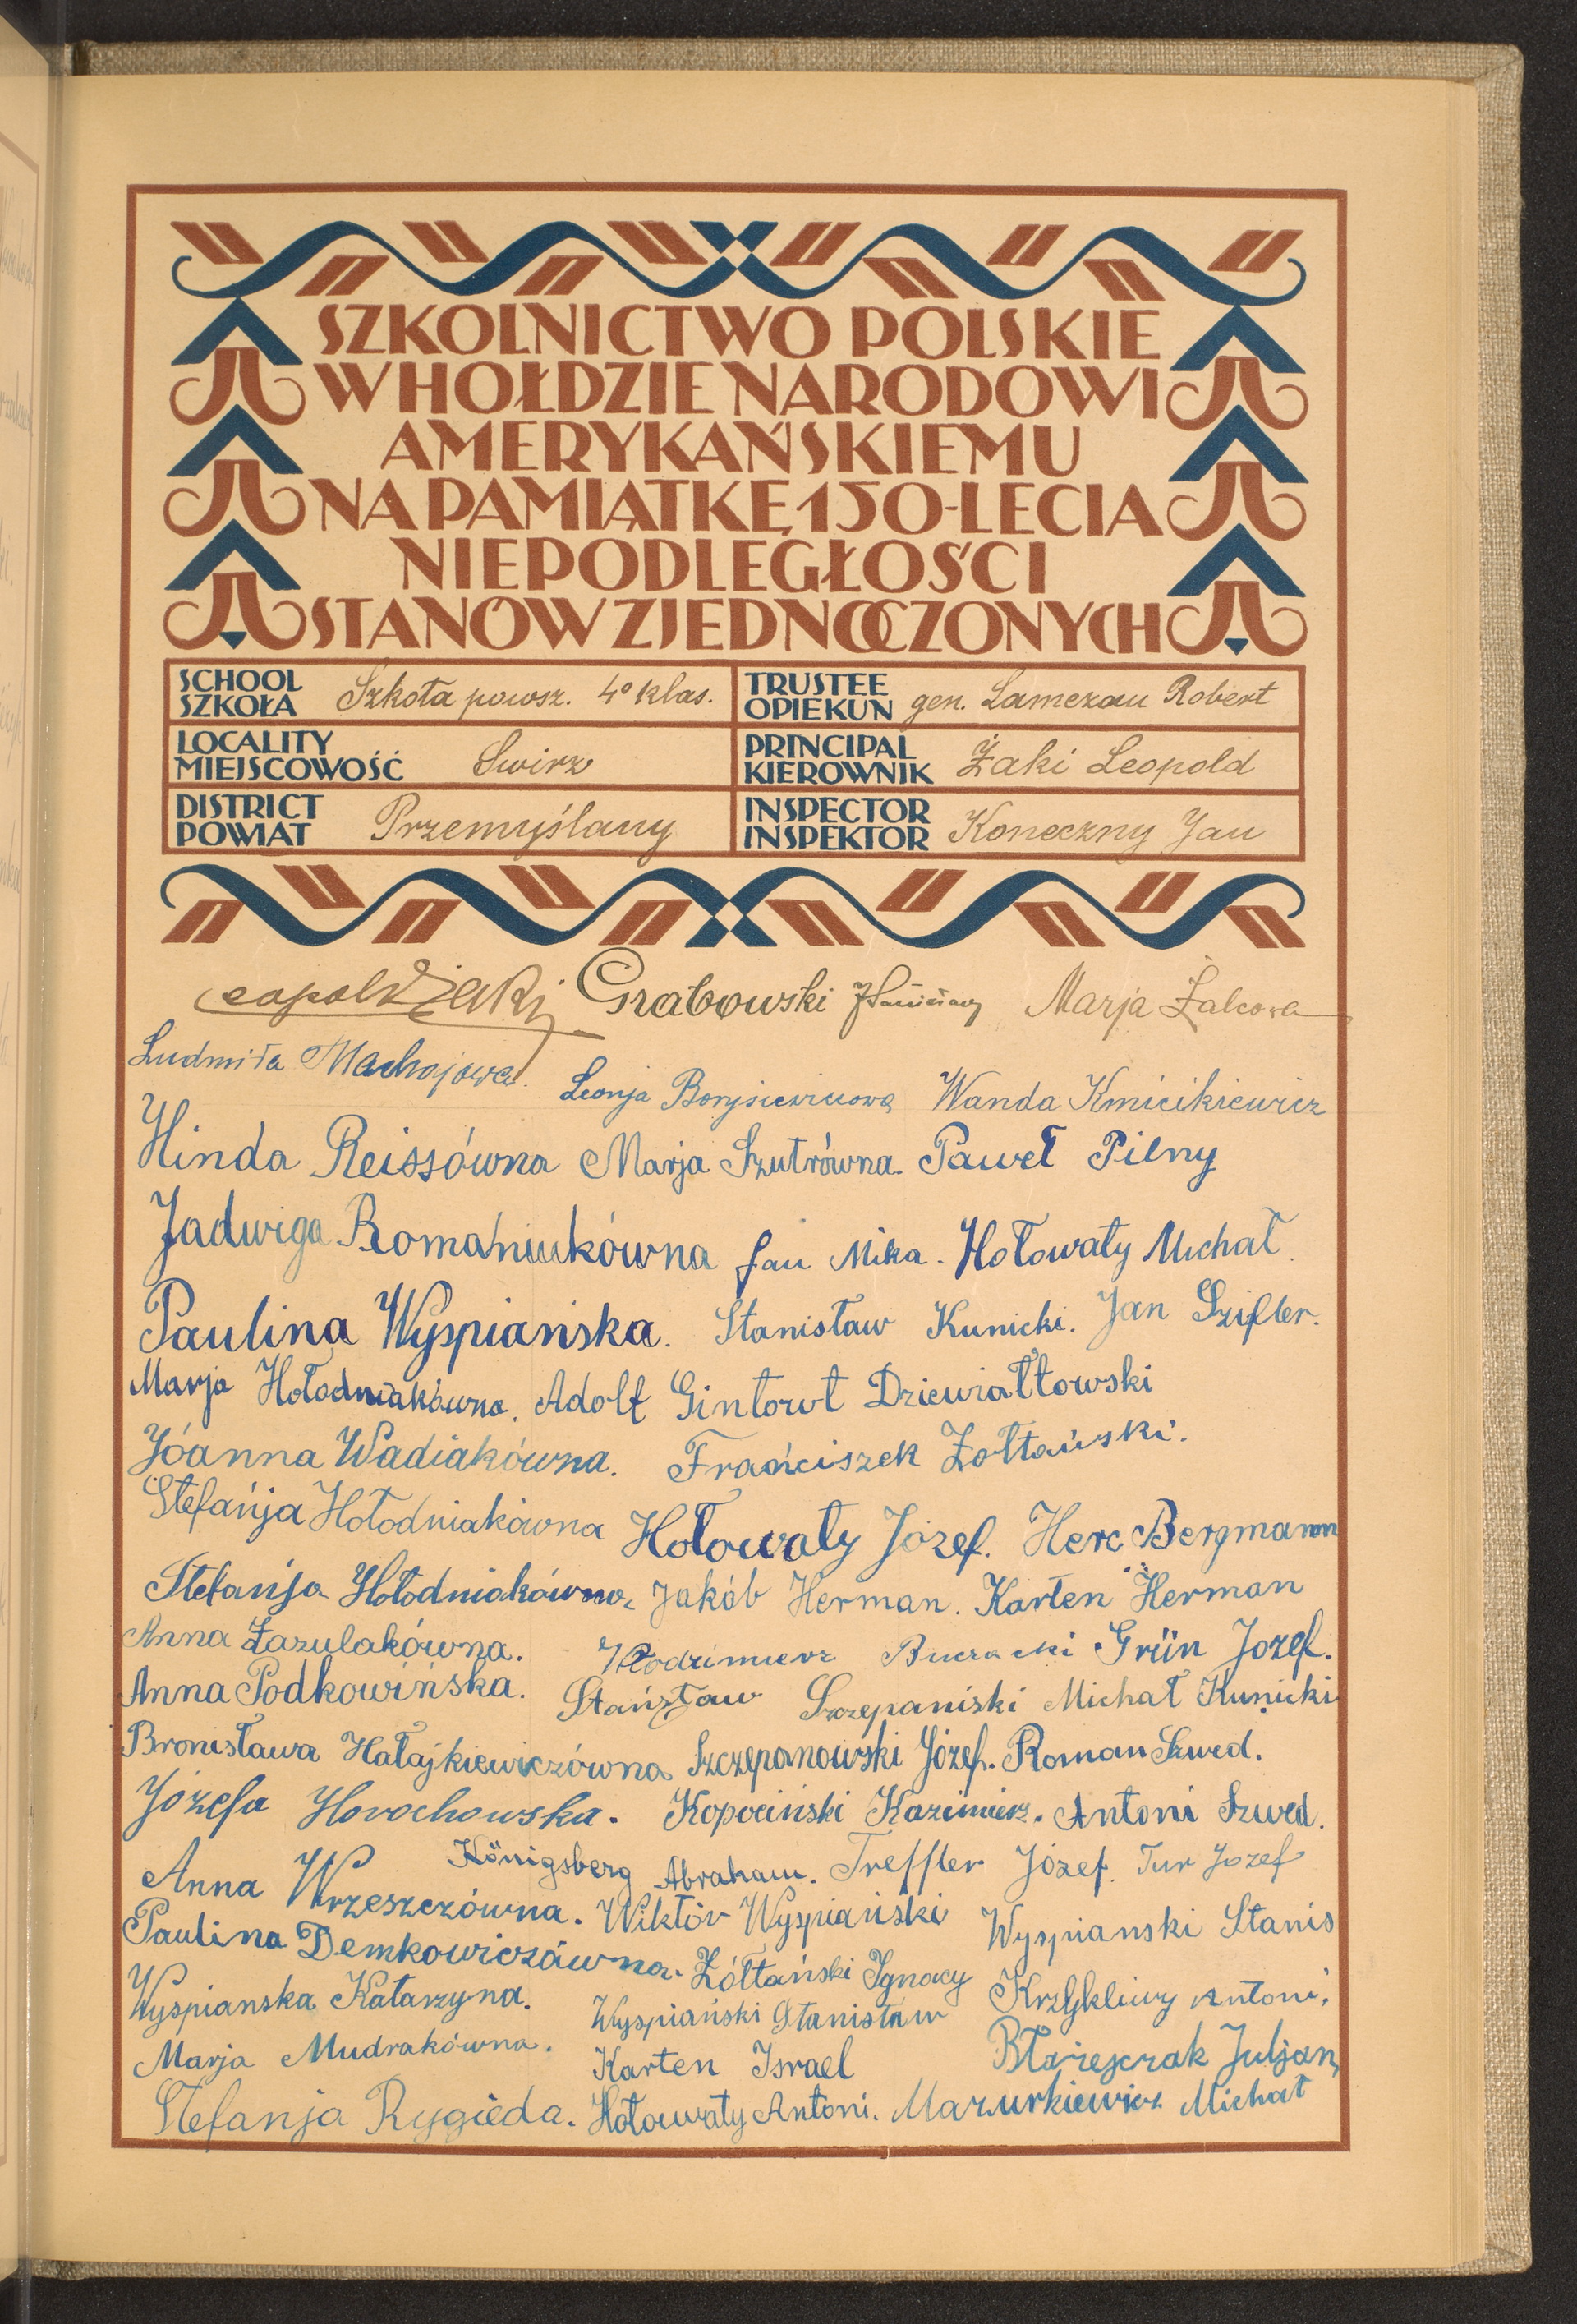 SZKOLNICTWO POLSKIE
W HOŁDZIE NARODOWI
AMERYKAŃSKIEMU
NA PAMIĄTKĘ 150-LECIA
NIEPODLEGŁOŚCI
STANÓW ZJEDNOCZONYCH
SCHOOL SZKOŁA Szkoła powsz. 4º klas. TRUSTEE OPIEKUN gen. Lamezan Robert
LOCALITY MIEJSCOWOŚĆ Swirz PRINCIPAL KIEROWNIK Żaki Leopold
DISTRICT POWIAT Przemyślany INSPECTOR INSPEKTOR Koneczny Jan
Leopold Żaki Grabowski Marja Żalcowa
Ludmiła Machojowa. Leonja Borysiewiczowa Wanda Kmicikiewicz
Hinda Reissówna Marja Szutrówna. Paweł Pilny
Jadwiga Romaniukówna Jan Mika. Hołowaty Michał.
Paulina Wyspiańska. Stanisław Kunicki. Jan Szifler.
Marja Hołodniakówna. Adolf Gintowt Dziewiałtowski
Jóanna Wadiakówna. Frańciszek Żołtański.
Stefańja Hołodniakówna Hołowaty Józef. Herc Bergmann
Stefanja Hołodniakówna. Jakób Herman. Karten Herman
Anna Zazulakówna. Włodzimierz Buczacki Grün Jozef.
Anna Podkowińska. Stanisław Szczepaniski Michał Kunicki
Bronisława Hałajkiewiczówna Szczepanowski Józef. Roman Szwed.
Józefa Horochowska. Kopociński Kazimierz. Antoni Szwed.
Anna Wrzeszczówna. Königsberg Abraham. Treffler Józef. Tur Jozef
Paulina Demkowiczówna. Wiktór Wyspiański Wyspianski Stanis
Wyspianska Katarzyna. Żółtański Ignacy Krzykliwy Antoni.
Marja Mudrakówna. Wyspiański Stanisław Błażejczak Juljan,
Karten Israel
Stefanja Rygieda. Hołowaty Antoni. Mazurkiewicz Michał